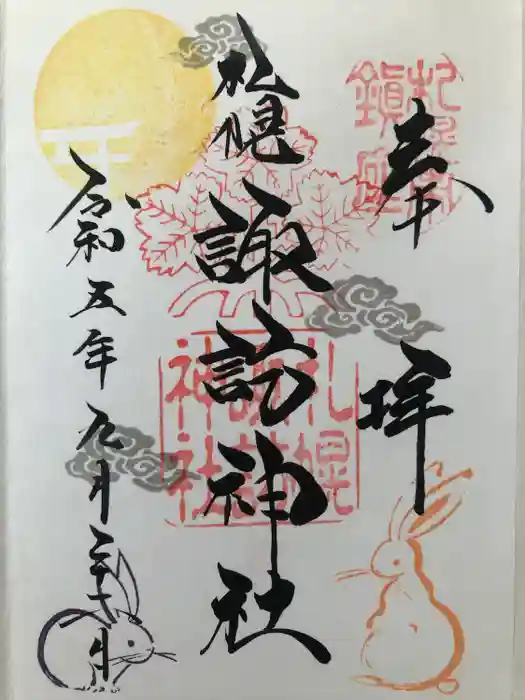 奉拝
札幌
諏訪神社
令和五年九月二十七日
札幌
諏訪
神社